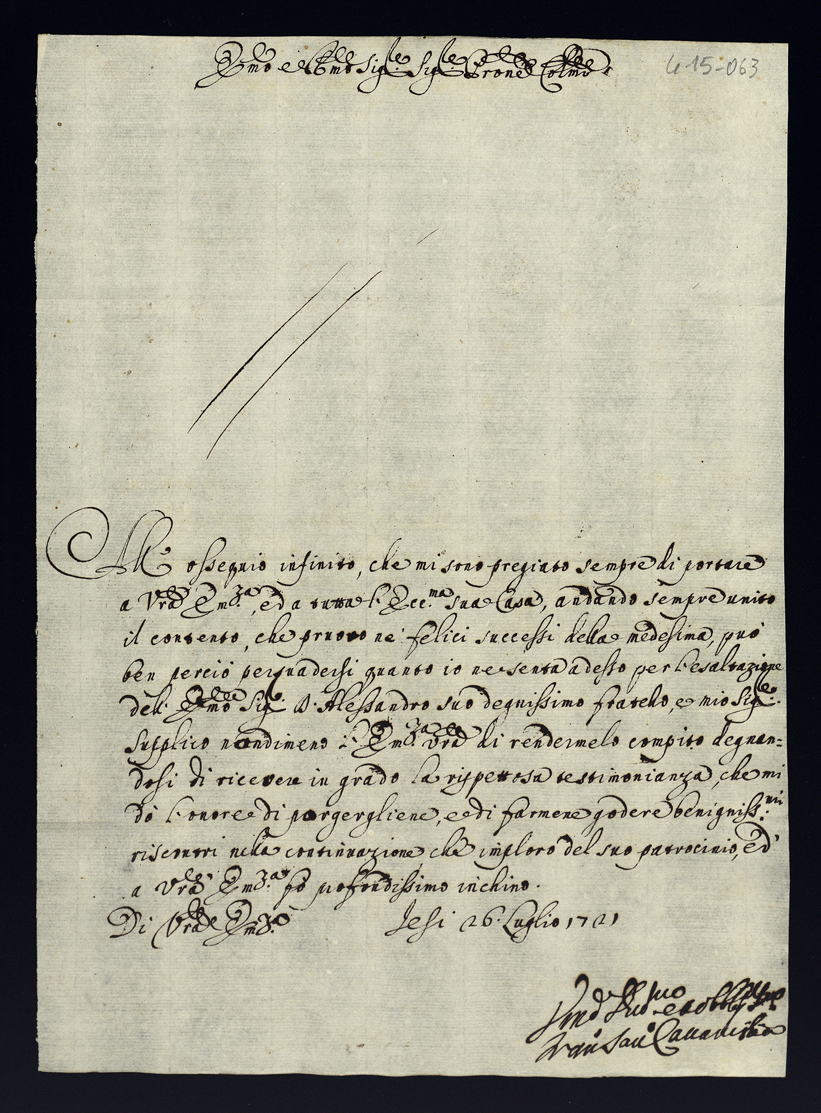 Emo e Rmo Sig.re Sig.re Prone Colmo
4-15-063
All' ossequio infinito, che mi sono pregiato sempre di portare
a Vra Em.za, ed a tutta l'Ecc.ma sua Casa, andando sempre unito
il contento, che pruovo ne' felici successi della medesima, può
ben perciò persuadersi quanto io ne senta adesso per l'esaltazione
dell' Emo Sig.r D. Alessandro suo degnissimo fratello, e mio Sig.re.
Supplico nondimeno l' Em.za Vra di rendermelo compito degnan=
dosi di ricevere in grado la rispettosa testimonianza, che mi
dò l'onore di porgergliene, e di farmene godere benigniss.mi
riscontri nella continuazione che imploro del suo patrocinio, ed
a Vra Em.za fò profondissimo inchino.
Di Vra Em.za Jesi 26 Luglio 1721